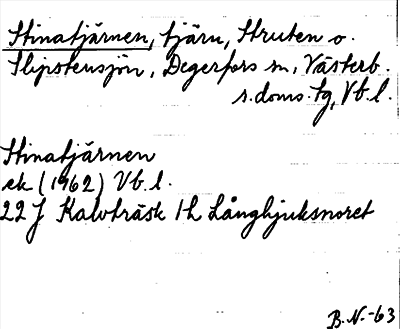 Stinatjärnen, tjärn, Struten o.
Slipstensjön, Degerfors sn, Västerb.
s.doms. tg, Vb. l.
Stinatjärnen
ek (1962) Vb. l.
22 J Kalvträsk 1h Långhjuksnoret
B.N.-63